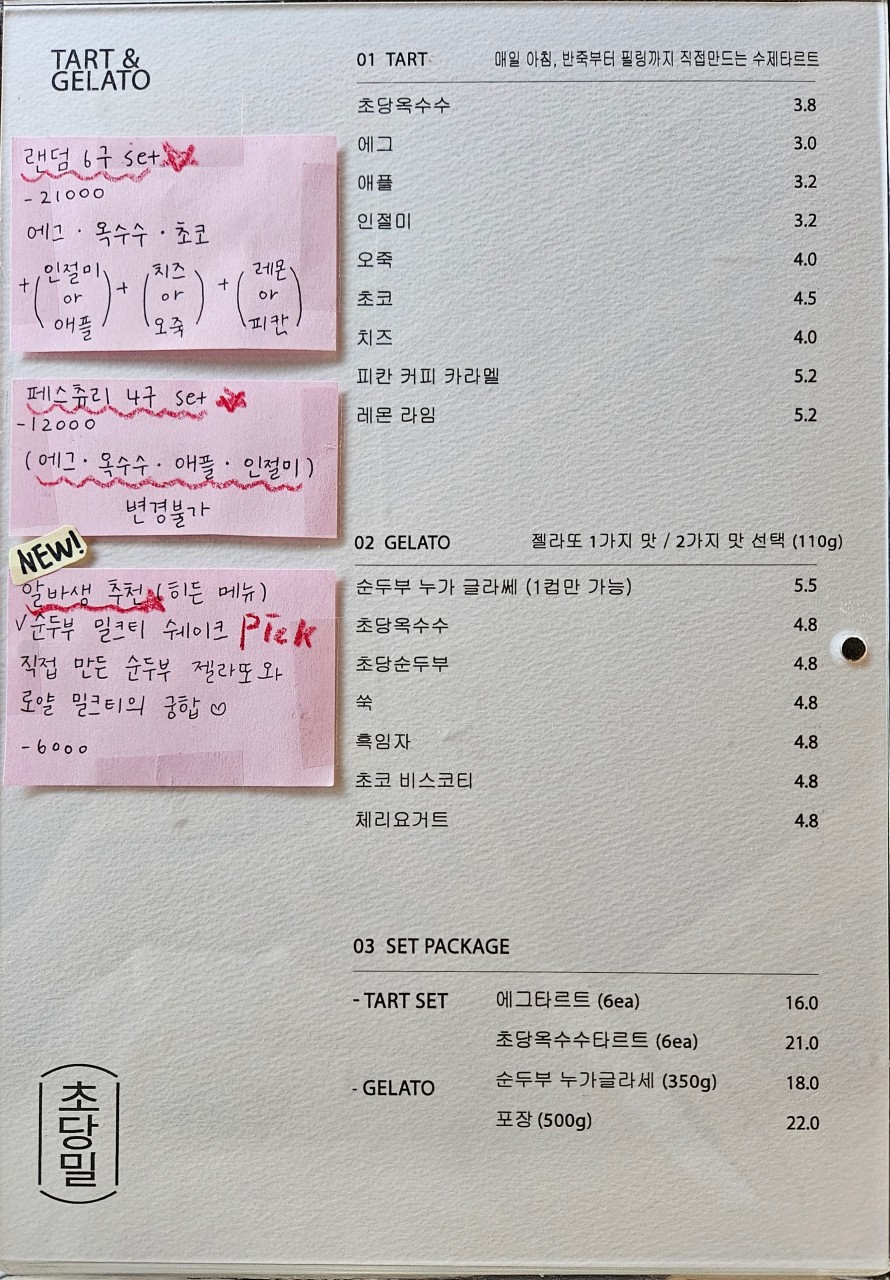 TART &
GELATO
랜덤 6구 set
- 21000
에그 · 옥수수 · 초코
+ (인절미 or 애플) + (치즈 or 오죽) + (레몬 or 피칸)
페스츄리 4구 set
-12000
(에그 · 옥수수 · 애플 · 인절미)
변경불가
NEW!
알바생 추천 (히든 메뉴)
√ 순두부 밀크티 쉐이크 Pick
직접 만든 순두부 젤라또와
로얄 밀크티의 궁합♡
- 6000
01 TART 매일 아침, 반죽부터 필링까지 직접만드는 수제타르트
초당옥수수 3.8
에그 3.0
애플 3.2
인절미 3.2
오죽 4.0
초코 4.5
치즈 4.0
피칸 커피 카라멜 5.2
레몬 라임 5.2
02 GELATO 젤라또 1가지 맛 / 2가지 맛 선택 (110g)
순두부 누가 글라쎄 (1컵만 가능) 5.5
초당옥수수 4.8
초당순두부 4.8
쑥 4.8
흑임자 4.8
초코 비스코티 4.8
체리요거트 4.8
03 SET PACKAGE
- TART SET 에그타르트 (6ea) 16.0
초당옥수수타르트 (6ea) 21.0
- GELATO 순두부 누가글라세 (350g) 18.0
포장 (500g) 22.0
초당밀